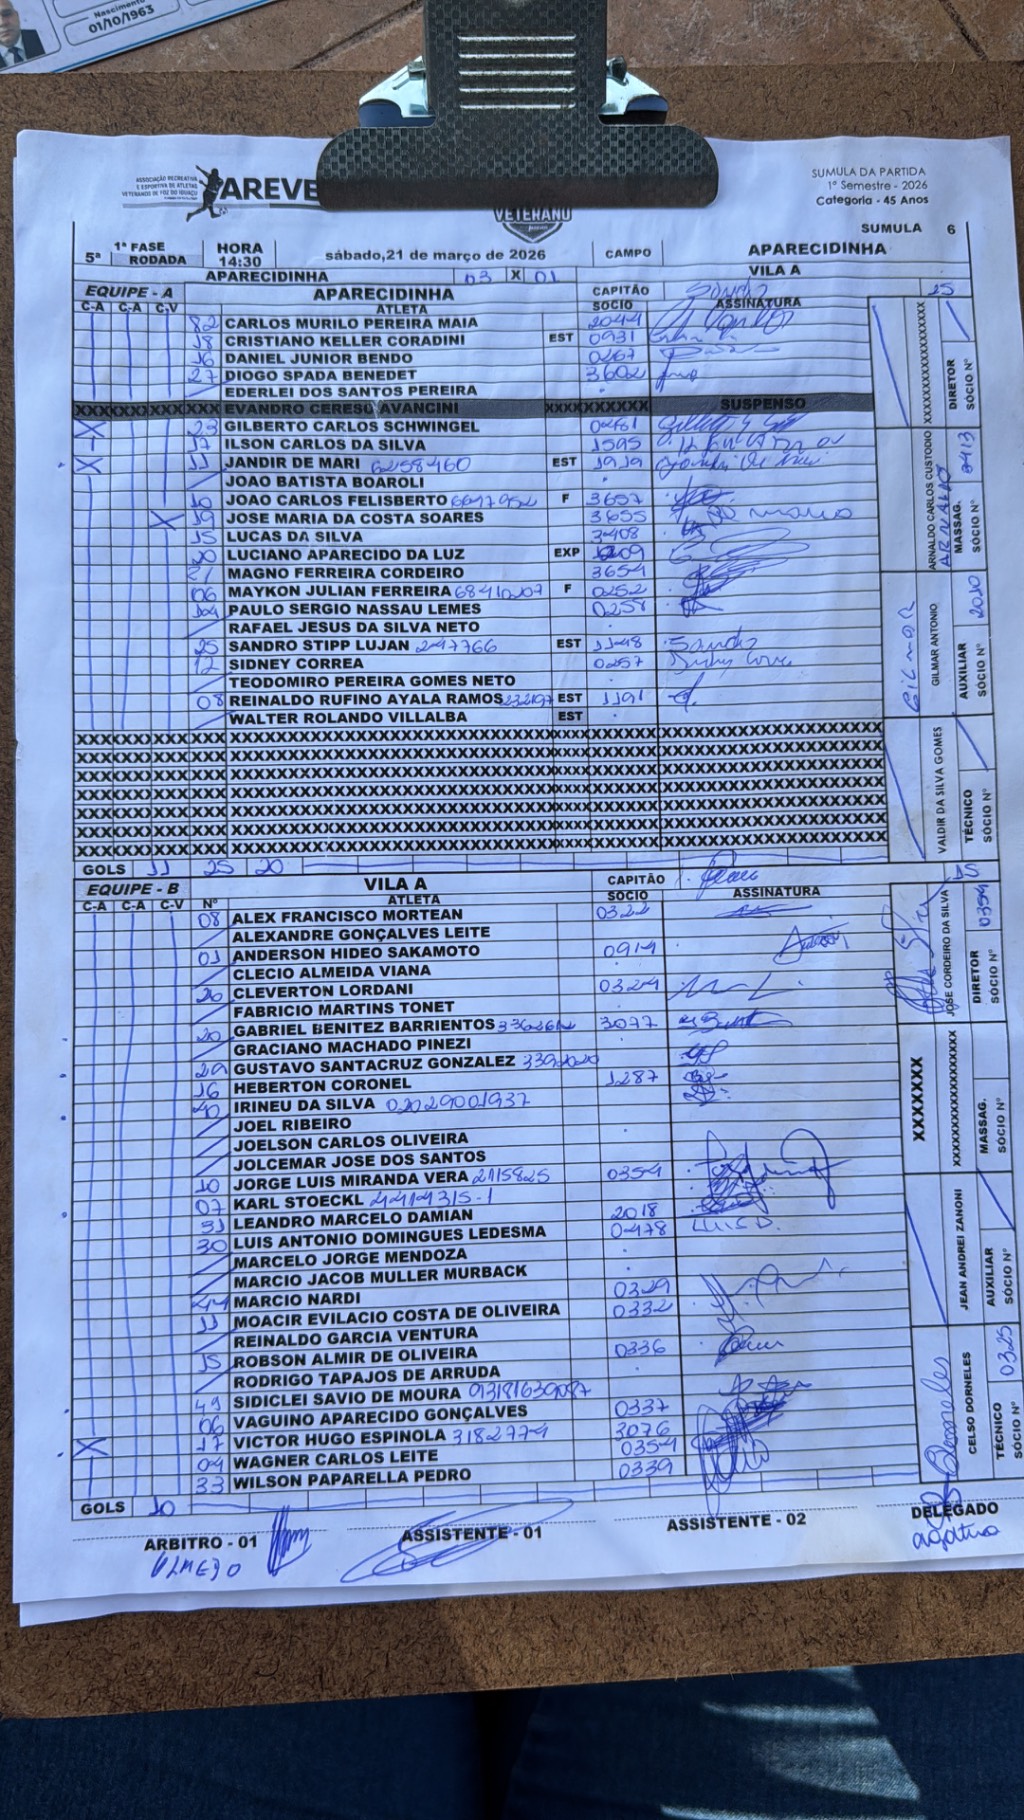 Nascimento
01/10/1963
ASSOCIAÇÃO RECREATIVA
E ESPORTIVA DE ATLETAS
VETERANOS DE FOZ DO IGUAÇU
AREVE
VETERANO
SUMULA DA PARTIDA
1º Semestre - 2026
Categoria - 45 Anos
SUMULA 6
5ª 1ª FASE RODADA HORA 14:30 sábado,21 de março de 2026 CAMPO APARECIDINHA
APARECIDINHA 03 X 01 VILA A
EQUIPE - A APARECIDINHA CAPITÃO 25
C-A C-A C-V ATLETA SOCIO ASSINATURA
82 CARLOS MURILO PEREIRA MAIA 2044
18 CRISTIANO KELLER CORADINI EST 0931
16 DANIEL JUNIOR BENDO 0267
27 DIOGO SPADA BENEDET 3602
EDERLEI DOS SANTOS PEREIRA
XXX XXX XXX XXX EVANDRO CERESO AVANCINI XXXXXXXXXX SUSPENSO
X 23 GILBERTO CARLOS SCHWINGEL 0281
17 ILSON CARLOS DA SILVA 1595
X 11 JANDIR DE MARI 6258460 EST 1919
JOAO BATISTA BOAROLI
10 JOAO CARLOS FELISBERTO 6697952 F 3657
X 19 JOSE MARIA DA COSTA SOARES 3655
15 LUCAS DA SILVA 3408
20 LUCIANO APARECIDO DA LUZ EXP
21 MAGNO FERREIRA CORDEIRO 3654
06 MAYKON JULIAN FERREIRA 68410207 F 0252
PAULO SERGIO NASSAU LEMES 0258
RAFAEL JESUS DA SILVA NETO
25 SANDRO STIPP LUJAN 247766 EST 1148 Sandro
12 SIDNEY CORREA 0257
TEODOMIRO PEREIRA GOMES NETO
08 REINALDO RUFINO AYALA RAMOS EST 1191
WALTER ROLANDO VILLALBA EST
GOLS 11 25 20
DIRETOR SÓCIO Nº
ARNALDO CARLOS CUSTODIO ARNALDO MASSAG. SÓCIO Nº 0413
GILMAR GILMAR ANTONIO AUXILIAR SÓCIO Nº 2010
VALDIR DA SILVA GOMES TÉCNICO SÓCIO Nº
EQUIPE - B VILA A CAPITÃO 15
C-A C-A C-V Nº ATLETA SOCIO ASSINATURA
08 ALEX FRANCISCO MORTEAN 0322
ALEXANDRE GONÇALVES LEITE
01 ANDERSON HIDEO SAKAMOTO 0914
CLECIO ALMEIDA VIANA
26 CLEVERTON LORDANI 0324
FABRICIO MARTINS TONET
20 GABRIEL BENITEZ BARRIENTOS 3077
GRACIANO MACHADO PINEZI
29 GUSTAVO SANTACRUZ GONZALEZ 3392020
16 HEBERTON CORONEL 1287
40 IRINEU DA SILVA 02029001937
JOEL RIBEIRO
JOELSON CARLOS OLIVEIRA
JOLCEMAR JOSE DOS SANTOS
10 JORGE LUIS MIRANDA VERA 2115825 0354
07 KARL STOECKL 4414315-1
31 LEANDRO MARCELO DAMIAN 2018
30 LUIS ANTONIO DOMINGUES LEDESMA 0478 LUIS D.
MARCELO JORGE MENDOZA
MARCIO JACOB MULLER MURBACK
44 MARCIO NARDI 0329
11 MOACIR EVILACIO COSTA DE OLIVEIRA 0332
REINALDO GARCIA VENTURA
15 ROBSON ALMIR DE OLIVEIRA 0336
RODRIGO TAPAJOS DE ARRUDA
49 SIDICLEI SAVIO DE MOURA 93181639087
06 VAGUINO APARECIDO GONÇALVES 0337
X 17 VICTOR HUGO ESPINOLA 3182774 3076
04 WAGNER CARLOS LEITE 0354
33 WILSON PAPARELLA PEDRO 0339
GOLS 10
JOSE CORDEIRO DA SILVA DIRETOR SÓCIO Nº 0354
XXXXXXX MASSAG. SÓCIO Nº
JEAN ANDREI ZANONI AUXILIAR SÓCIO Nº
CELSO DORNELES TÉCNICO SÓCIO Nº 0325
ARBITRO - 01 ASSISTENTE - 01 ASSISTENTE - 02 DELEGADO